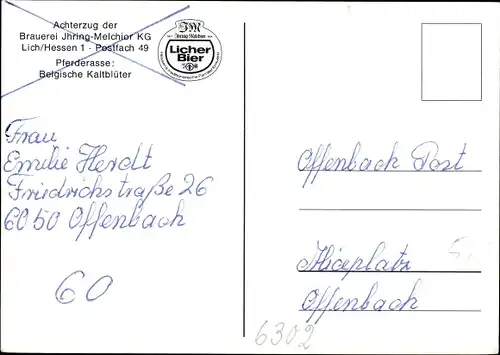 Achterzug der
Brauerei Jhring-Melchior KG
Lich/Hessen 1 - Postfach 49
Pferderasse:
Belgische Kaltblüter
JM
Jhring-Melchior
Licher
Bier
Frau
Emilie Herdt
Friedrichstraße 26
6050 Offenbach
60
Offenbach Post
Aliceplatz
Offenbach
6302